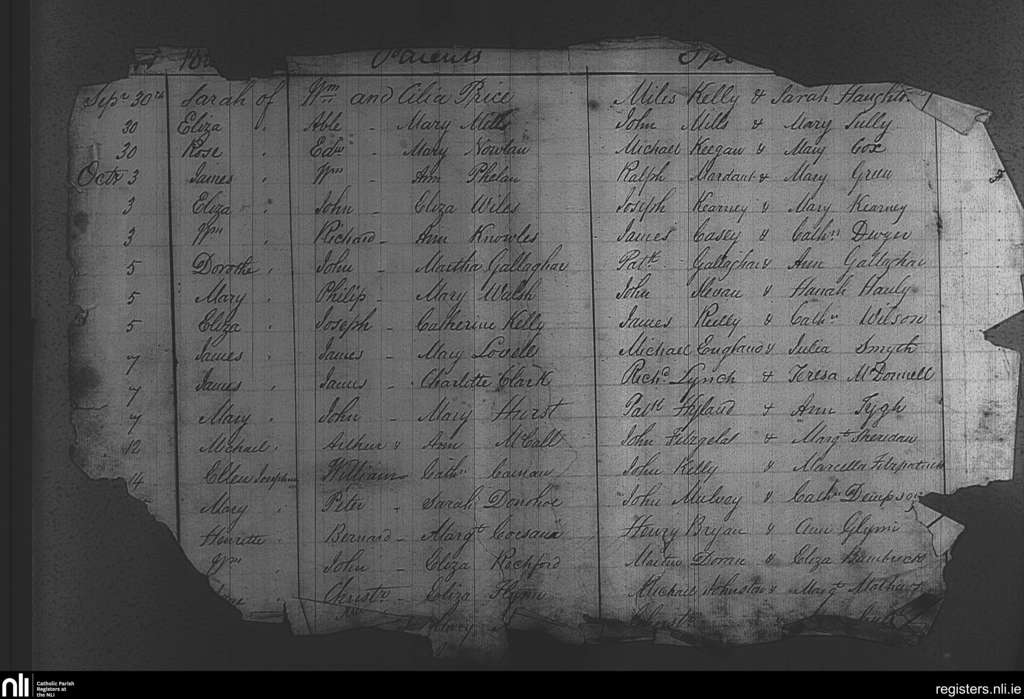 Parents
Sepr 30th Sarah of Wm and Celia Price Miles Kelly & Sarah Haughton
30 Eliza " Able - Mary Mills John Mills & Mary Tully
30 Rose " Edwd - Mary Nowlan Michael Keegan & Mary Cox
Octr 3 James " Wm - Ann Phelan Ralph & Mary Green
3 Eliza " John - Eliza Wiles Joseph Kearney & Mary Kearney
3 Wm " Richard - Ann Knowles James Casey & Cathn Dwyer
5 Dorothe " John - Martha Gallaghar Patk Gallaghar & Ann Gallaghar
5 Mary " Philip - Mary Walsh John & Hanah Hanly
5 Eliza " Joseph - Catherine Kelly James Reilly & Cathn Wilson
7 James " James - Mary Lovele Michael England & Julia Smyth
7 James " James - Charlotte Clark Richd Lynch & Teresa McDonnell
7 Mary " John - Mary Hurst Patk Hyland & Ann Tygh
12 Michael " Arthur & Ann McCall John Fitzgelat & Margt Sheridan
14 Ellen Josephine William Cathn John Kelly & Marcella Fitzpatrick
Mary " Peter - Sarah Donohoe John Mulvey & Cathn Dempsey
Henrette " Bernard - Margt Corsana Henry Bryan & Ann Glynn
Wm " John - Eliza Rochford Martin Doran & Eliza Bambrick
Christr - Eliza Flynn Michael Johnston & Margt
Mary
nli Catholic Parish
Registers at
the NLI
registers.nli.ie